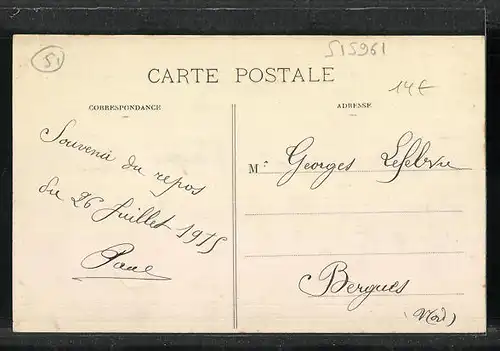 51
515961
CARTE POSTALE
14€
CORRESPONDANCE
ADRESSE
Souvenir du repos
du 26 Juillet 1915
Paul
M. Georges Lefebvre
Bergues
(Nord)